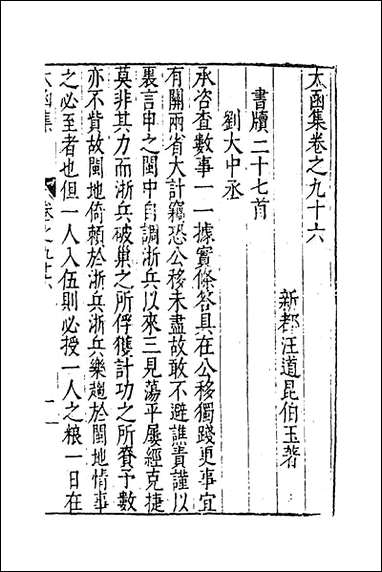 太函集卷之九十六
新都汪道昆伯玉著
書牘二十七首
劉大中丞
承咨查數事一一據實條答具在公移獨踐更事宜
有關兩省大計竊恐公移未盡故敢不避譙責謹以
裏言申之閩中自調浙兵以來三見蕩平屢經克捷
莫非其力而浙兵破巢之所俘獲計功之所賚予數
亦不貲故閩地倚賴於浙兵浙兵樂趨於閩地情事
之必至者也但一人入伍則必授一人之粮一日在
太函集
卷之九十六
一